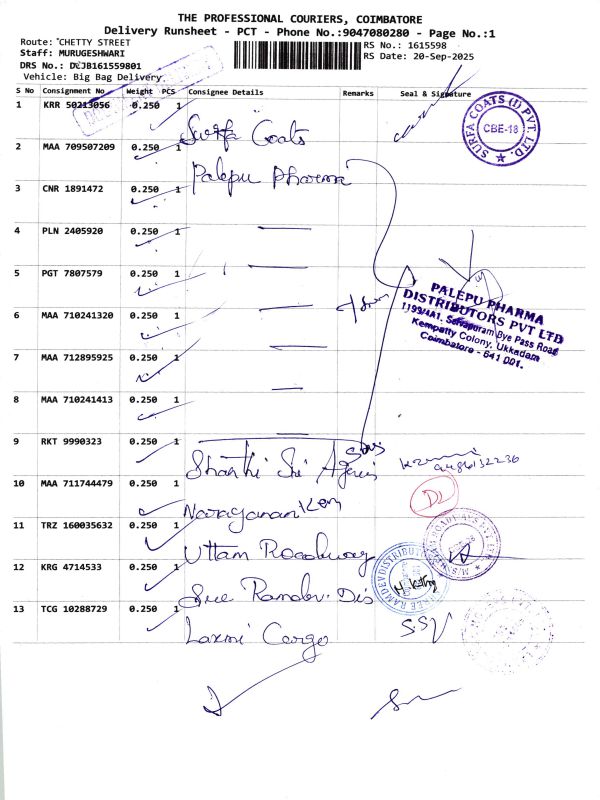 THE PROFESSIONAL COURIERS, COIMBATORE
Delivery Runsheet - PCT - Phone No.:9047080280 - Page No.:1
Route: CHETTY STREET
RS No.: 1615598
Staff: MURUGESHWARI
RS Date: 20-Sep-2025
DRS No.: DCJB161559801
Vehicle: Big Bag Delivery
S No Consignment No Weight PCS Consignee Details Remarks Seal & Signature
1 KRR 50213056 0.250 1 Surfa Coats
SURFA COATS (I) PVT. LTD.
CBE-18
2 MAA 709507209 0.250 1 Palepu Pharma
3 CNR 1891472 0.250 1
4 PLN 2405920 0.250 1
5 PGT 7807579 0.250 1
PALEPU PHARMA
DISTRIBUTORS PVT LTD
1199/4A1, Sanganoor Bye Pass Road
Kempatty Colony, Ukkadam
Coimbatore - 641 001.
6 MAA 710241320 0.250 1
7 MAA 712895925 0.250 1
8 MAA 710241413 0.250 1
9 RKT 9990323 0.250 1 Shanthi Sri
10 MAA 711744479 0.250 1 Narayanan
11 TRZ 160035632 0.250 1 Uttam Roadway
12 KRG 4714533 0.250 1 Sree Ramdev Dis
SREE RAMDEV DISTRIBUTORS
13 TCG 10288729 0.250 1 Laxmi Cargo S.SV